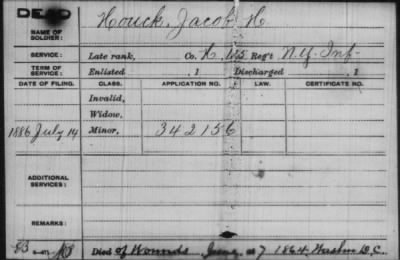 DEAD
NAME OF SOLDIER: Houck, Jacob H
SERVICE: Late rank, Co. K, 125 Reg't N.Y. Inf.
TERM OF SERVICE: Enlisted , 1 Discharged , 1
DATE OF FILING. CLASS. APPLICATION NO. LAW. CERTIFICATE NO.
Invalid,
Widow,
1886 July 14 Minor, 342156
ADDITIONAL SERVICES:
REMARKS:
Died of Wounds June 7 1864, Washn D.C.